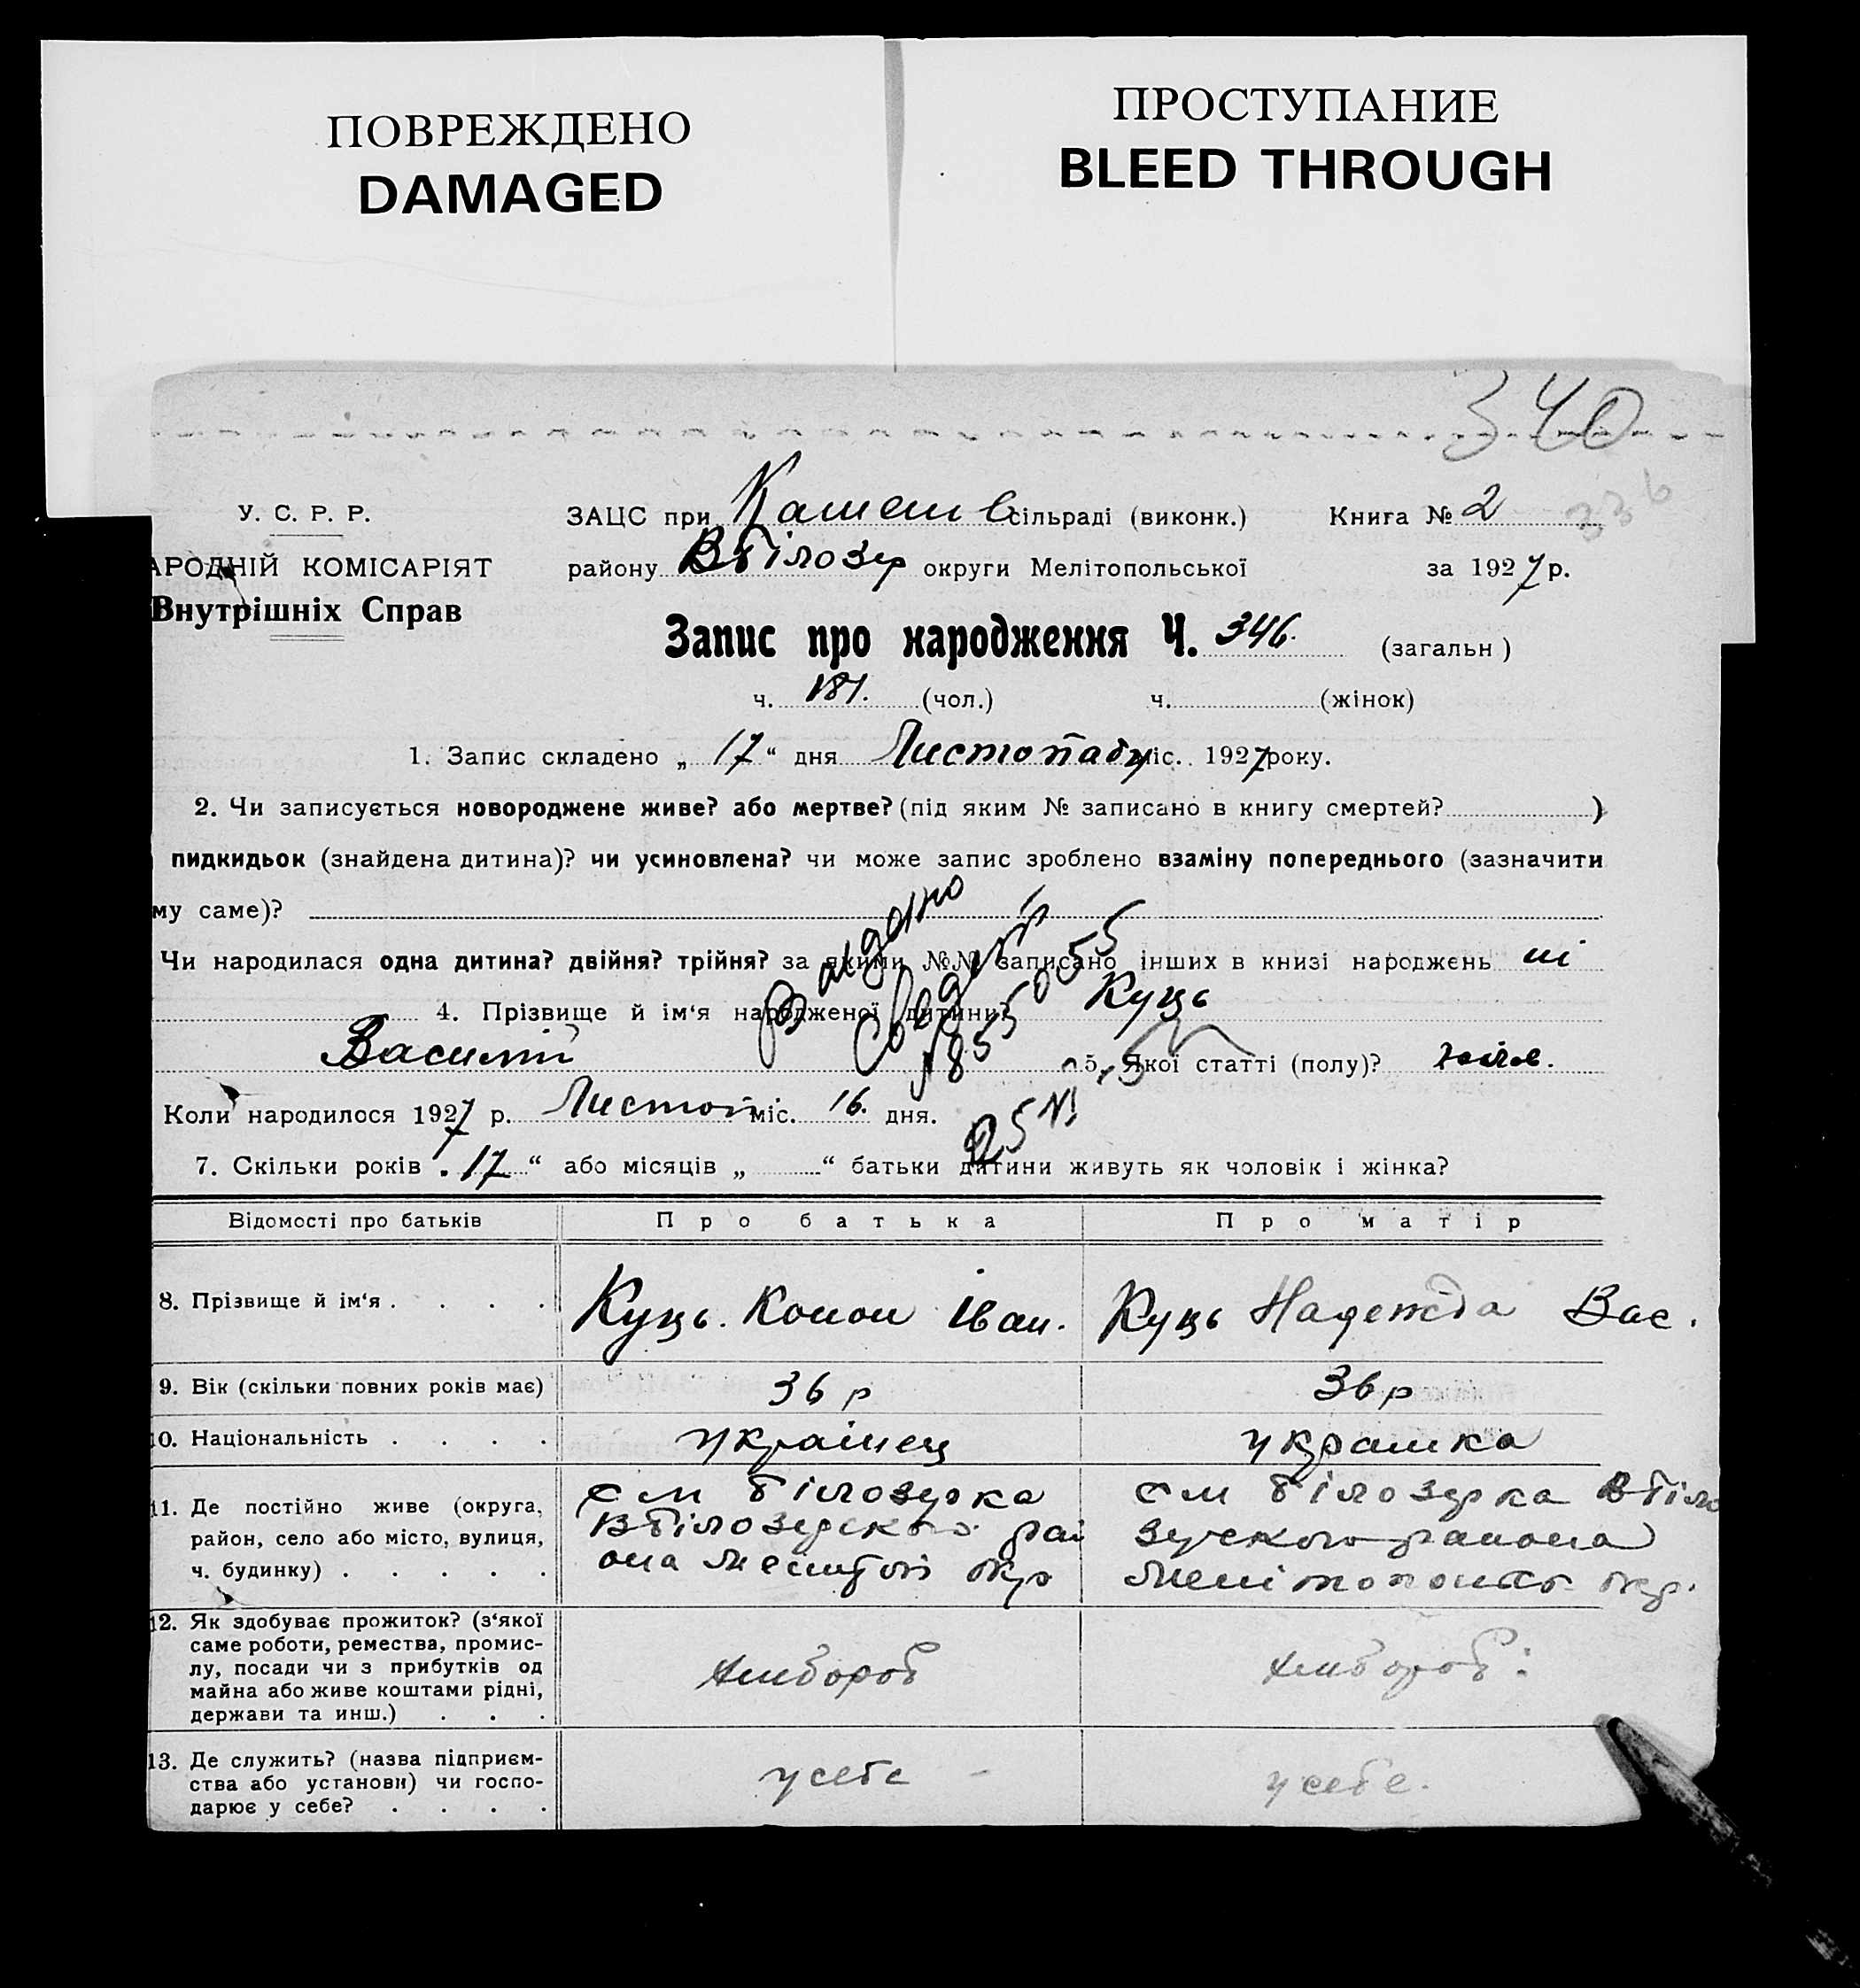 ПОВРЕЖДЕНО
DAMAGED
ПРОСТУПАНИЕ
BLEED THROUGH
340
336
У. С. Р. Р.
ЗАЦС при сільраді (виконк.) Книга № 2
АРОДНІЙ КОМІСАРІЯТ
району Вбілозер округи Мелітопольської за 1927 р.
Внутрішніх Справ
Запис про народження Ч. 346. (загальн)
ч. 181. (чол.) ч. (жінок)
1. Запис складено „ 17 “ дня Листопаду міс. 1927 року.
2. Чи записується новороджене живе? або мертве? (під яким № записано в книгу смертей? )
пидкидьок (знайдена дитина)? чи усиновлена? чи може запис зроблено взаміну попереднього (зазначити
му саме)?
Чи народилася одна дитина? двійня? трійня? за якими №№ записано інших в книзі народжень ні
4. Прізвище й ім‘я народженої дитини? Куць
Василій 5. Якої статті (полу)? чолов.
Коли народилося 1927 р. Листоп міс. 16. дня.
7. Скільки років „ 17 “ або місяців „ “ батьки дитини живуть як чоловік і жінка?
Відомості про батьків Про батька Про матір
8. Прізвище й ім‘я . . . . Куць. Конон Іван. Куць Надежда Вас.
9. Вік (скільки повних років має) 36 р 36 р
10. Національність . . . . українец украинка
11. Де постійно живе (округа, см білозерка см білозерка Вбіло
район, село або місто, вулиця, Вбілозерского рай зерского району
ч. будинку) . . . . . она окр окр.
12. Як здобуває прожиток? (з‘якої
саме роботи, ремества, промис-
лу, посади чи з прибутків од хлібороб хлібороб:
майна або живе коштами рідні,
держави та инш.) . . .
13. Де служить? (назва підприєм-
ства або установи) чи госпо- у себе - у себе.
дарює у себе? . . . .